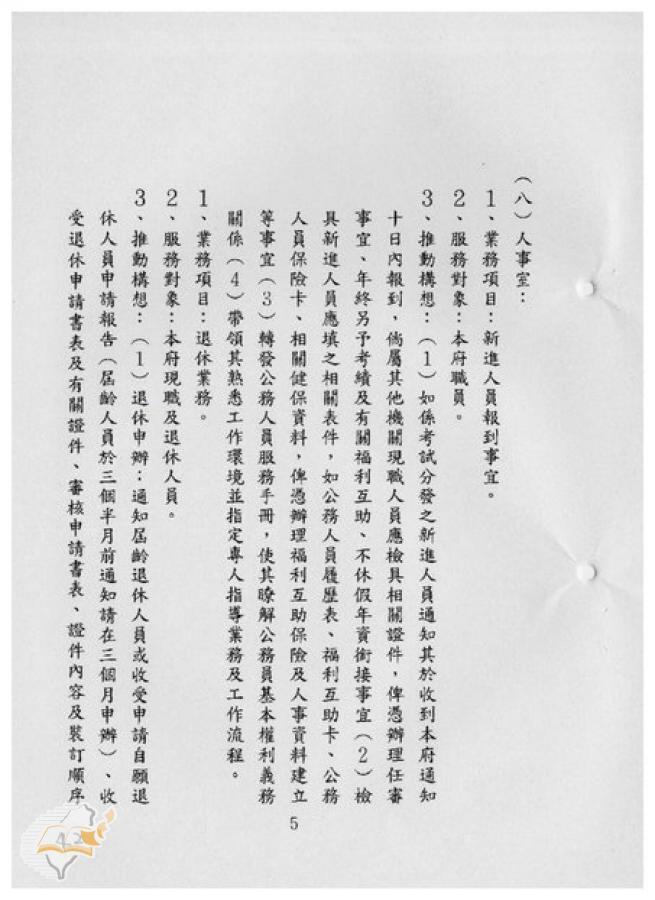 （八）人事室：
1、業務項目：新進人員報到事宜。
2、服務對象：本府職員。
3、推動構想：（1）如係考試分發之新進人員通知其於收到本府通知
十日內報到，倘屬其他機關現職人員應檢具相關證件，俾憑辦理任審
事宜、年終另予考績及有關福利互助、不休假年資銜接事宜（2）檢
具新進人員應填之相關表件，如公務人員履歷表、福利互助卡、公務
人員保險卡、相關健保資料，俾憑辦理福利互助保險及人事資料建立
等事宜（3）轉發公務人員服務手冊，使其瞭解公務員基本權利義務
關係（4）帶領其熟悉工作環境並指定專人指導業務及工作流程。
1、業務項目：退休業務。
2、服務對象：本府現職及退休人員。
3、推動構想：（1）退休申辦：通知屆齡退休人員或收受申請自願退
休人員申請報告（屆齡人員於三個半月前通知請在三個月申辦）、收
受退休申請書表及有關證件、審核申請書表、證件內容及裝訂順序
5
42